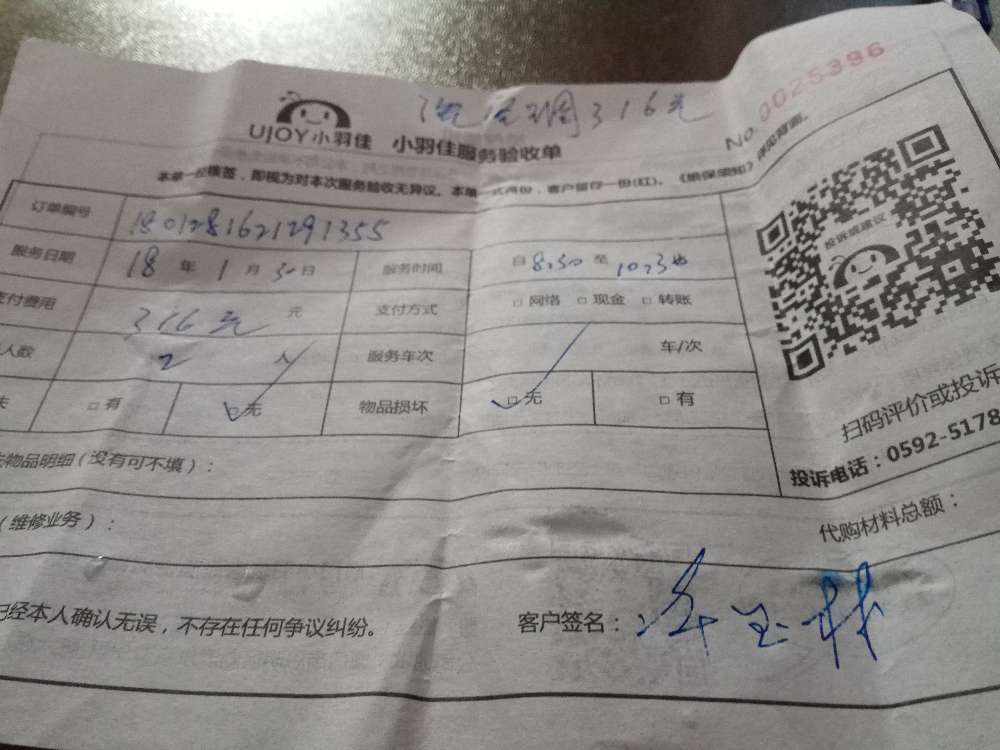 316元
No. 0025396
UJOY小羽佳 小羽佳服务验收单
本单一经核签，即视为对本次服务验收无异议。本单一式两份，客户留存一份(红)。《维保须知》详见背面。
订单编号 1801281621291355
服务日期 18 年 1 月 30 日 服务时间 自 8:30 至 10:30
支付费用 316元 元 支付方式 □ 网络 □ 现金 □ 转账
人数 2 人 服务车次 车/次
失 □ 有 □ 无 物品损坏 □ 无 □ 有
投诉或建议
扫码评价或投诉
投诉电话：0592-5178
物品明细（没有可不填）：
（维修业务）：
代购材料总额：
已经本人确认无误，不存在任何争议纠纷。
客户签名：